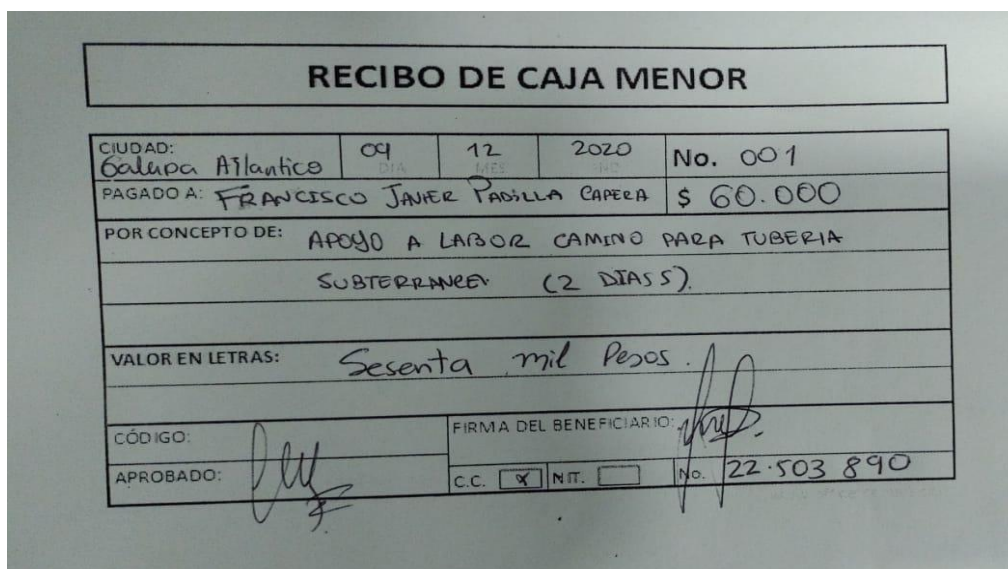 RECIBO DE CAJA MENOR
CIUDAD: Galapa Atlantico 09 12 2020 No. 001
DIA MES
PAGADO A: FRANCISCO JAVIER PADILLA CAPERA $ 60.000
POR CONCEPTO DE: APOYO A LABOR CAMINO PARA TUBERIA
SUBTERRANEA (2 DIAS S).
VALOR EN LETRAS: Sesenta mil Pesos.
CÓDIGO: FIRMA DEL BENEFICIARIO:
APROBADO: C.C. X NIT. No. 22.503 890